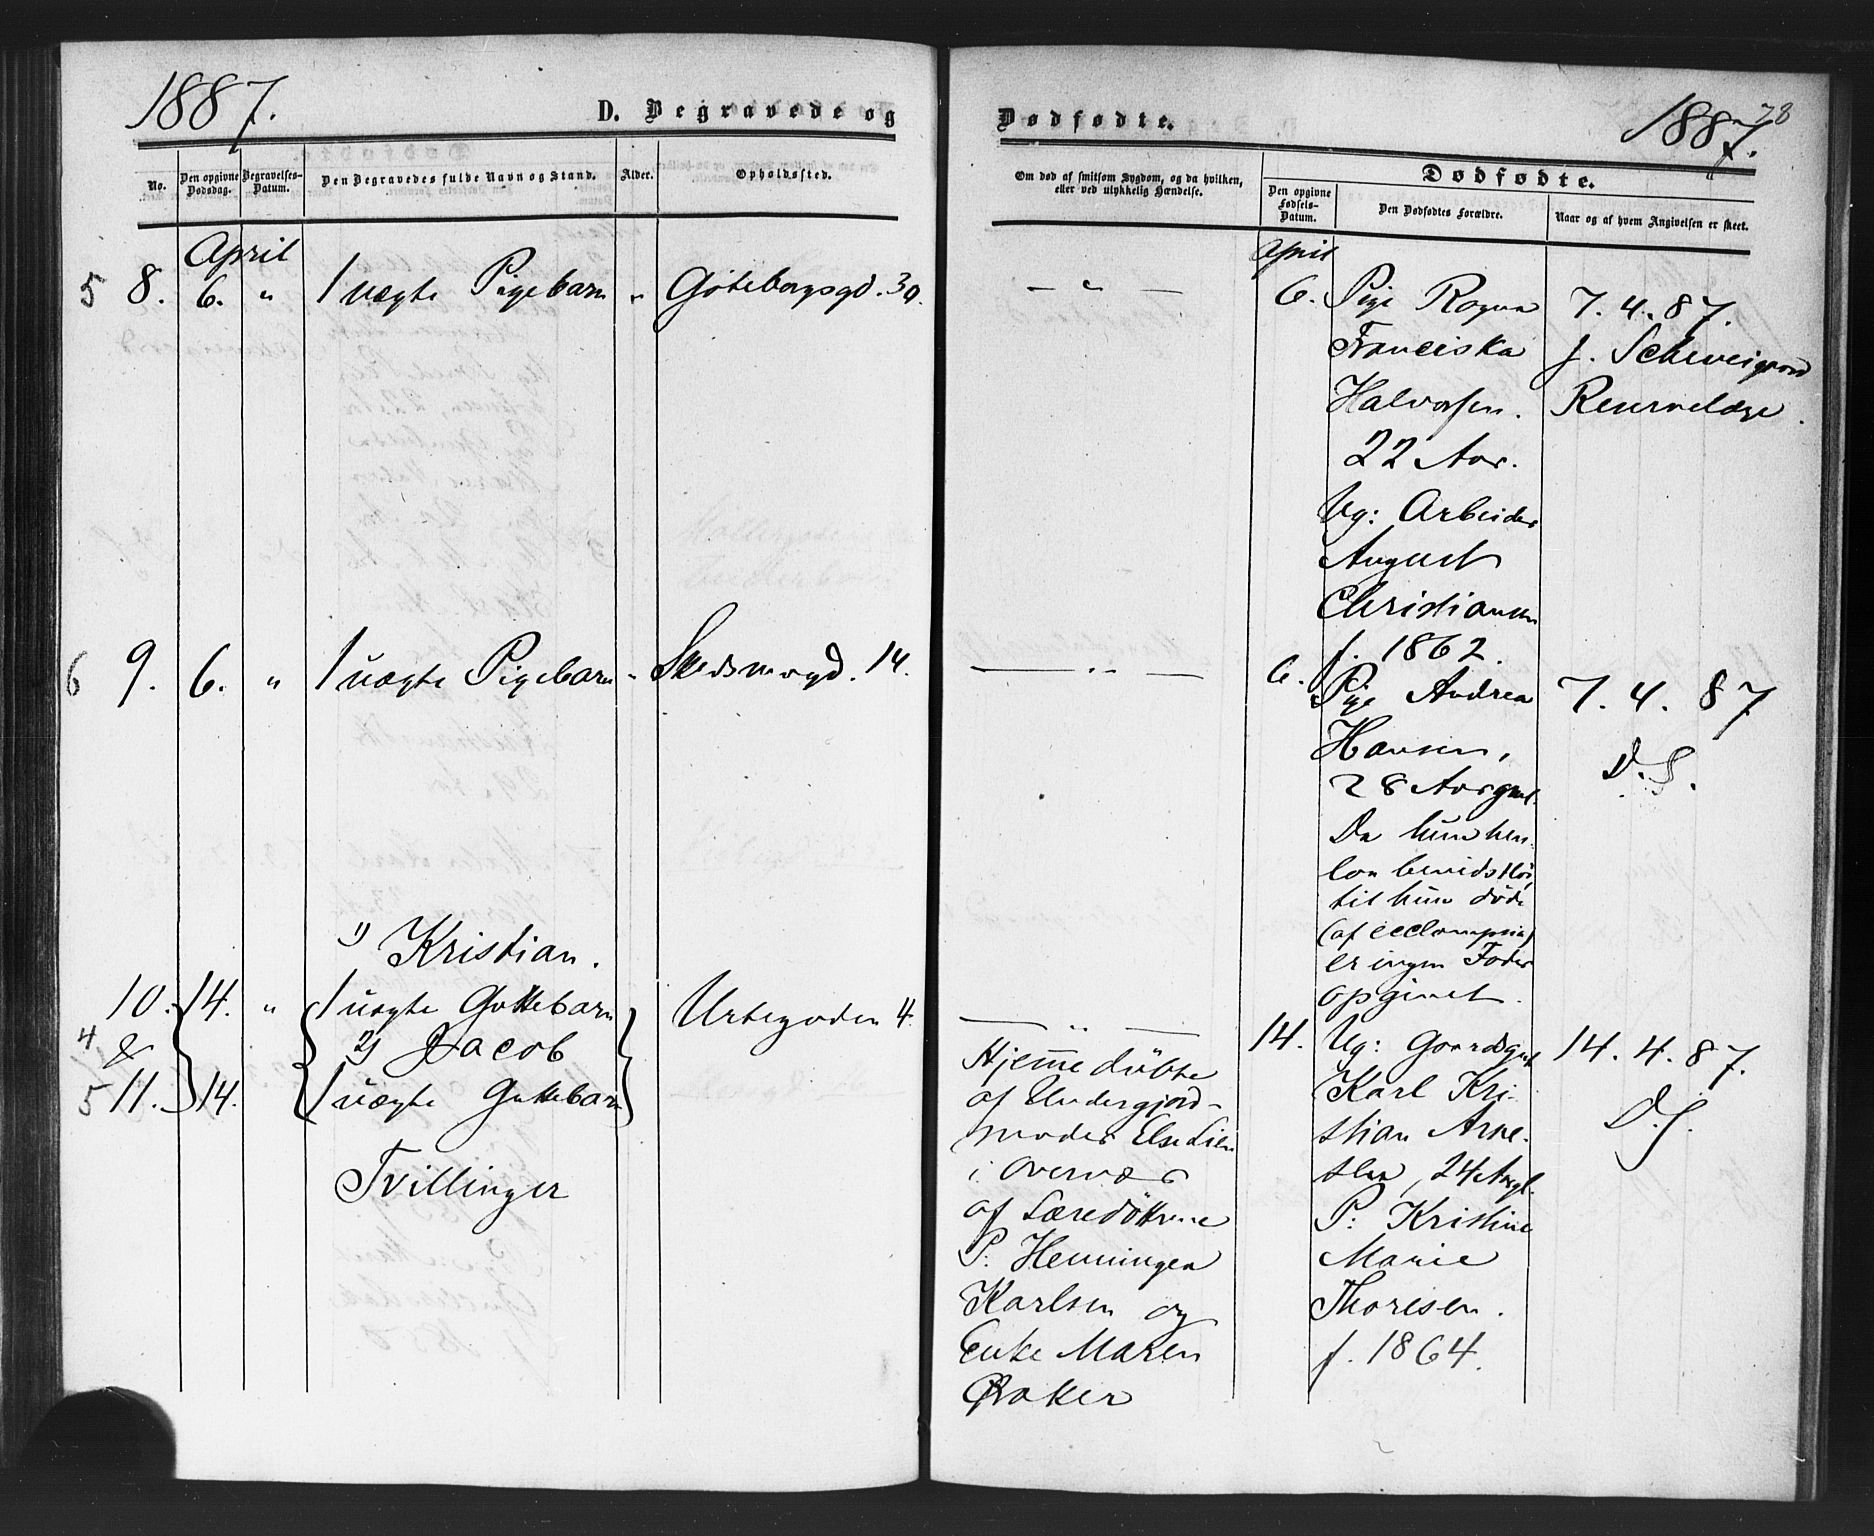 1887.
D. Begravede og
No.
Den opgivne Dødsdag.
Begravelses-Datum.
Den Begravedes fulde Navn og Stand.
Alder.
Opholdssted.
April
5 8. 6. " 1 uægte Pigebarn " Göteborgsgd. 30.
6 9. 6. " 1 uægte Pigebarn " Skedsmogd. 14.
1) Kristian.
10. 14. " 1 uægte Guttebarn Urtegaden 4.
4
& 2) Jacob
5 11. 14. 1 uægte Guttebarn
Tvillinger
Dødfødte.
1887.
78
Om død af smitsom Sygdom, og da hvilken,
eller ved ulykkelig Hændelse.
Dødfødte.
Den opgivne Fødsels-Datum.
Den Dødfødtes Forældre.
Naar og af hvem Angivelsen er skeet.
April
— " — 6. Pige Ragna 7. 4. 87.
Franciska J. Schweigaard
Halvorsen. Reservelæge.
22 Aar.
Ug: Arbeider
August
Christiansen
f. 1862.
— " — 6. Pige Andrea 7. 4. 87
Hansen, D.S.
28 Aar gml.
Da hun hen-
laa bevidstløs
til hun døde
(af ecclampsia)
er ingen Fader
opgivet.
— " — 14. Ug: Gaardsgut 14. 4. 87.
Hjemmedöbte Karl Kri-
af Undergjord- stian Arne- D.S.
moder Else Lien
i Overvær sen, 24 Aar gl.
af Læredöttrene P: Kristine
P: Henningea Marie
Karlsen og Thoresen.
Enke Maren f. 1864.
Braker